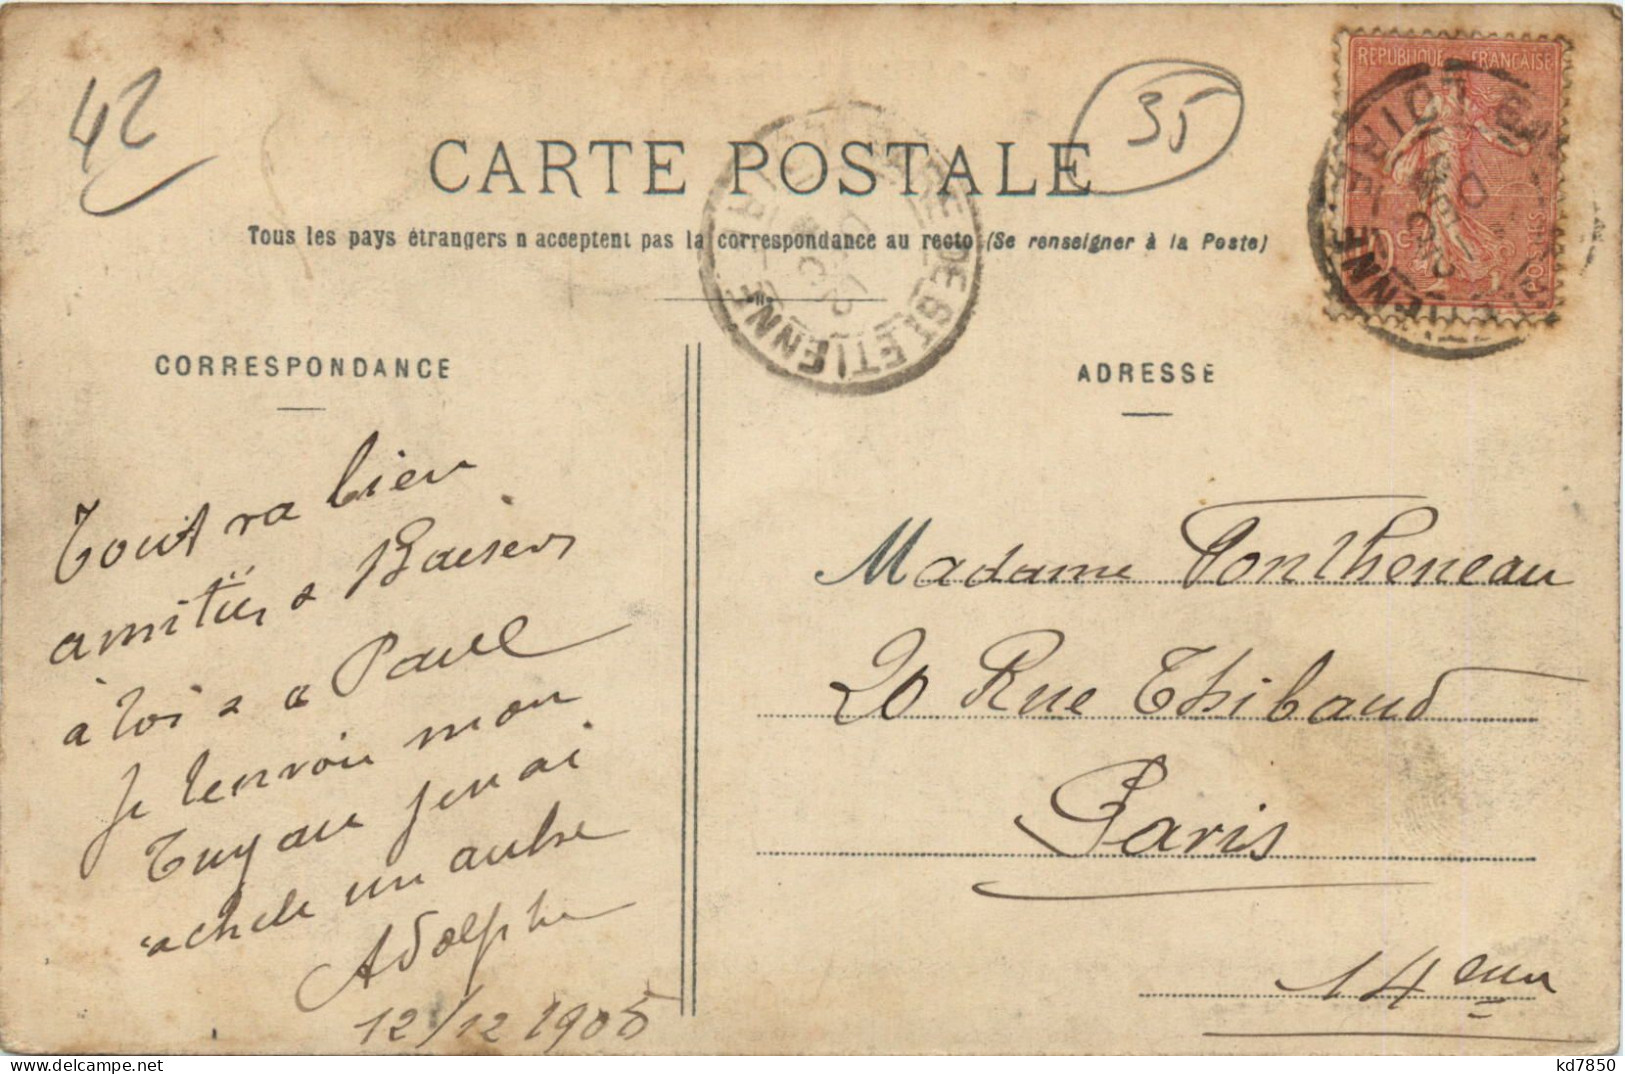 42
35
RÉPUBLIQUE FRANÇAISE
POSTES
CARTE POSTALE
Tous les pays étrangers n'acceptent pas la correspondance au recto (Se renseigner à la Poste)
GARE DE ST ETIENNE
CORRESPONDANCE
ADRESSE
Tout va bien
amitiés & Baisers
à toi & a Paul
Je tenvoie mon
Tuyau jenai
achete un autre
Adolphe
12/12 1905
Madame Fontheneau
20 Rue Thibaud
Paris
14 eme
kd7850